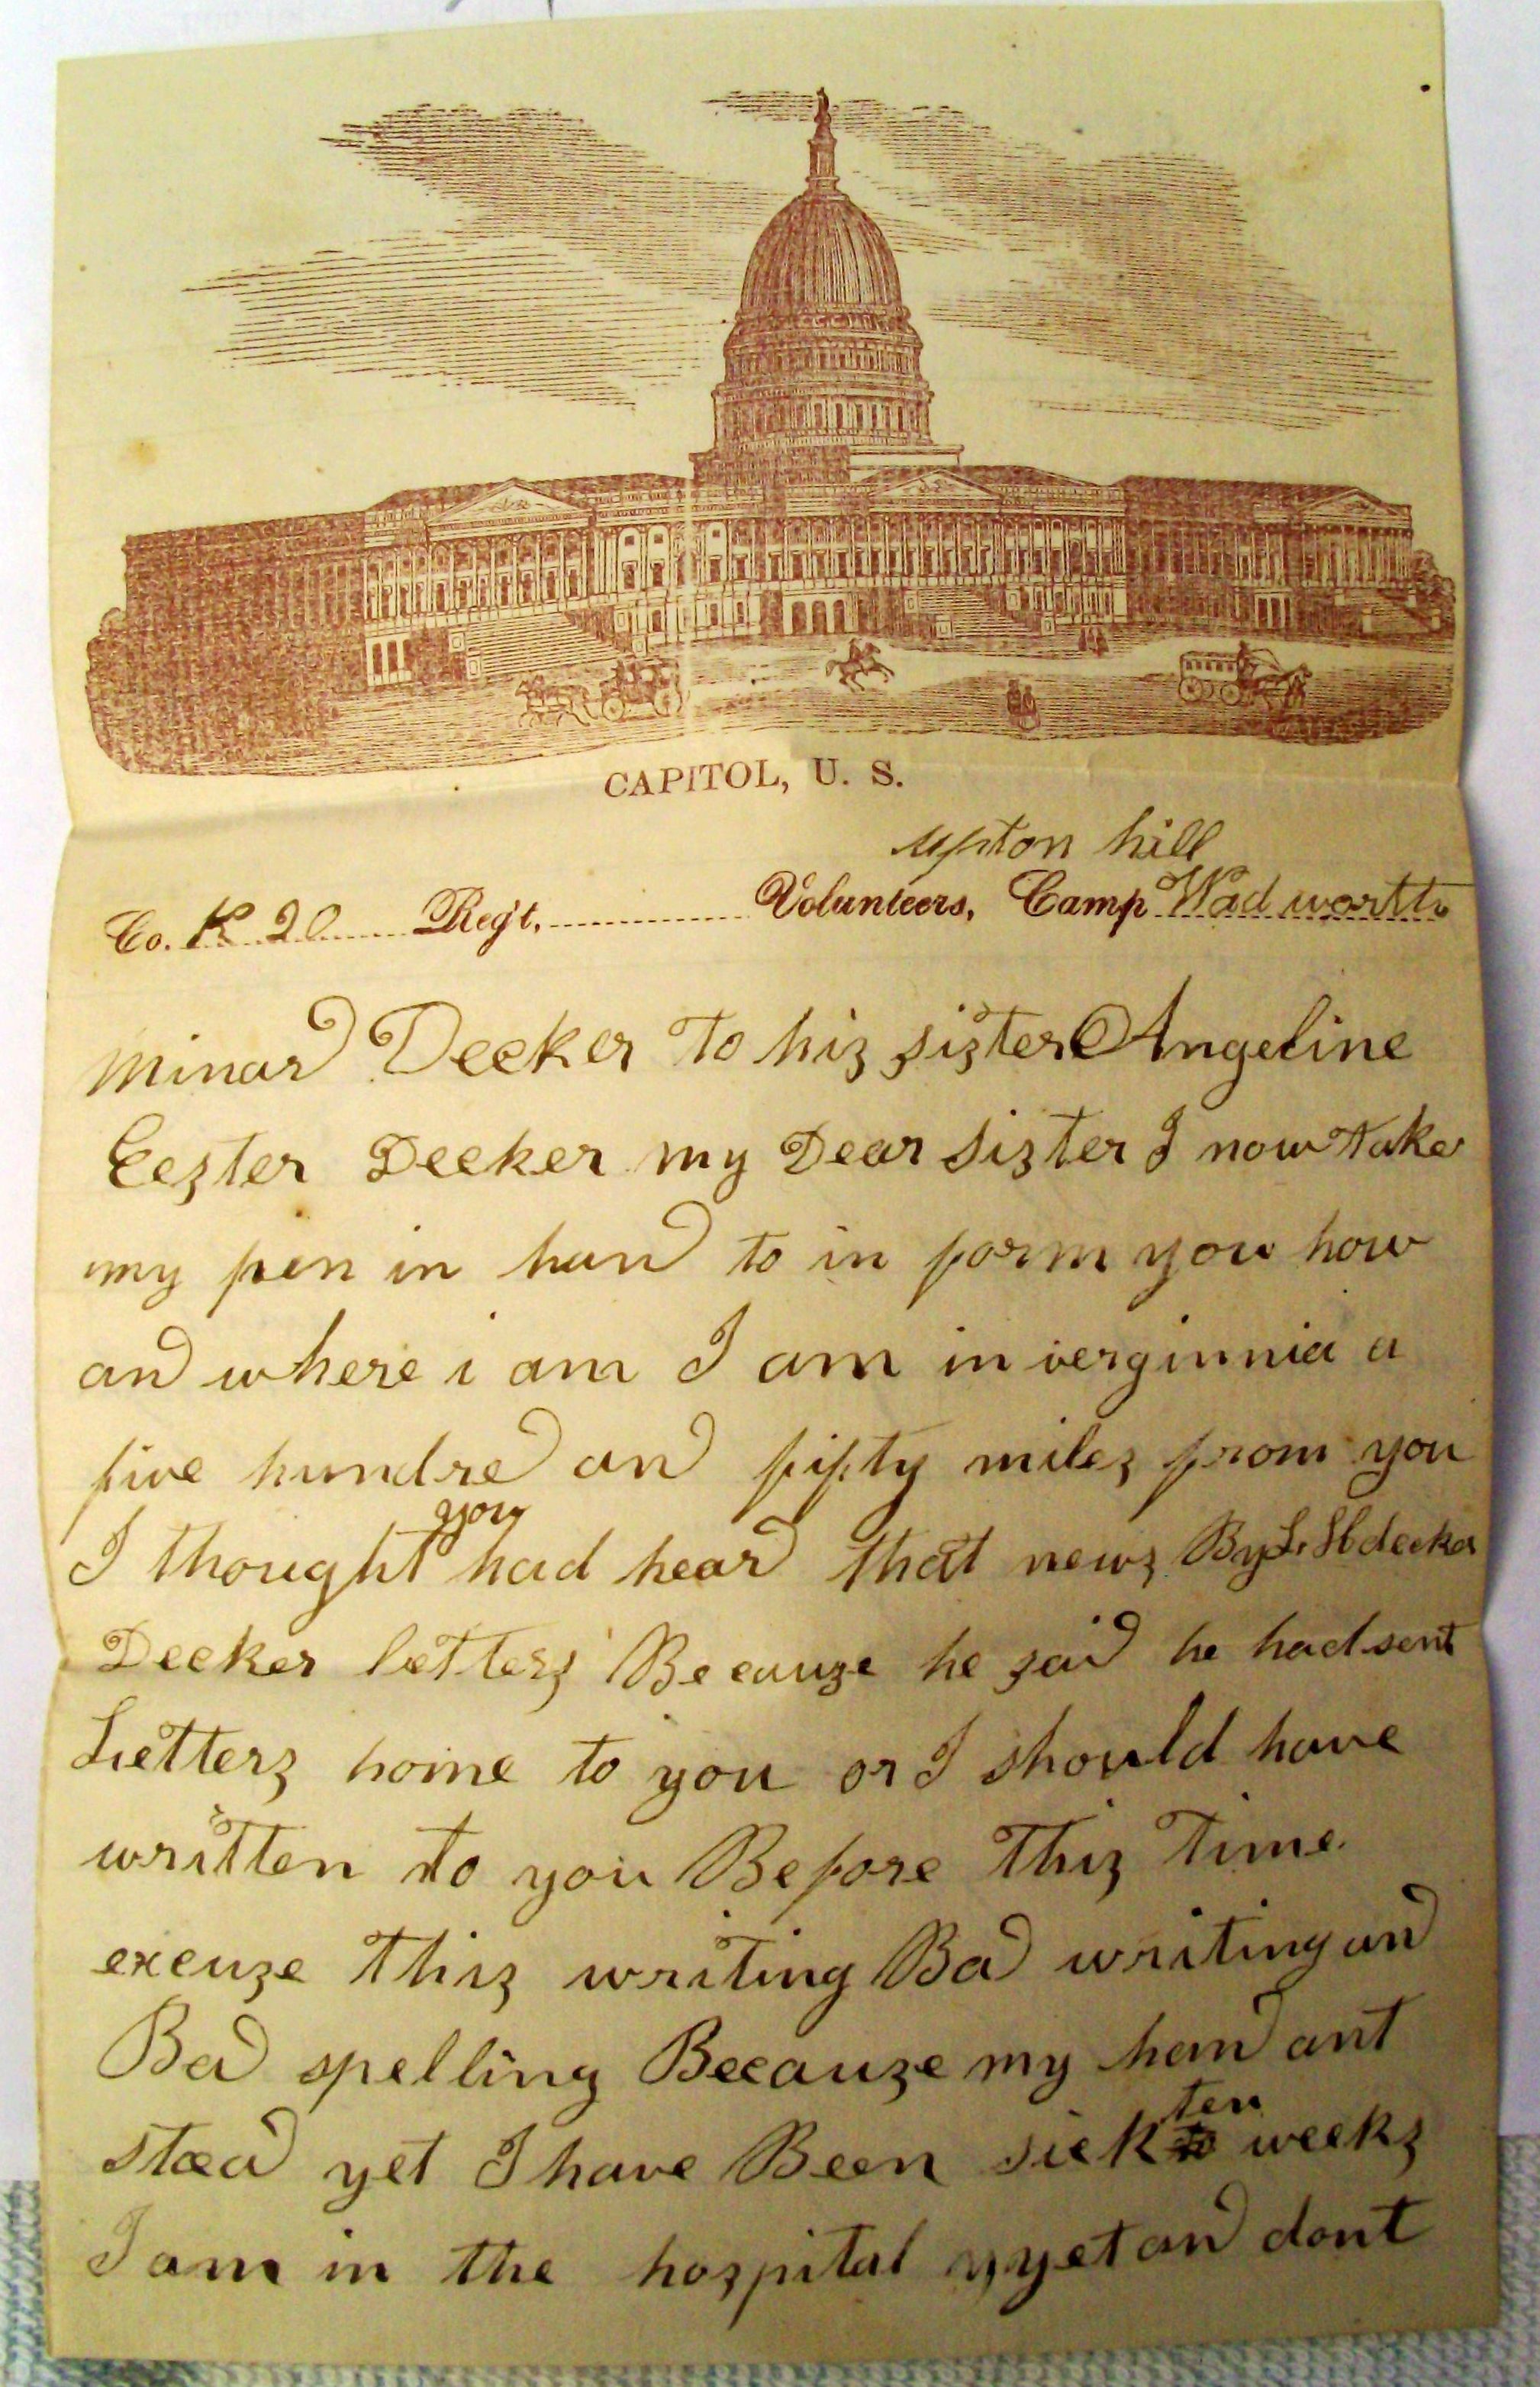 CAPITOL, U. S.
upton hill
Co. K 20 Reg't, Volunteers, Camp Wad worth
minard Decker To his sister Angeline
Eester Decker my Dear sister I now take
my pen in hand to in form you how
and where i am I am in verginnia a
five hundred and fifty miles from you
you
I thought had heard that news By L. H decker
Decker letters Because he said he had sent
Letters home to you or I should have
written to you Before This Time
excuse This writing Bad writing and
Bad spelling Because my hand ant
ten
stead yet I have Been sick weeks
I am in the hospital yyet and dont